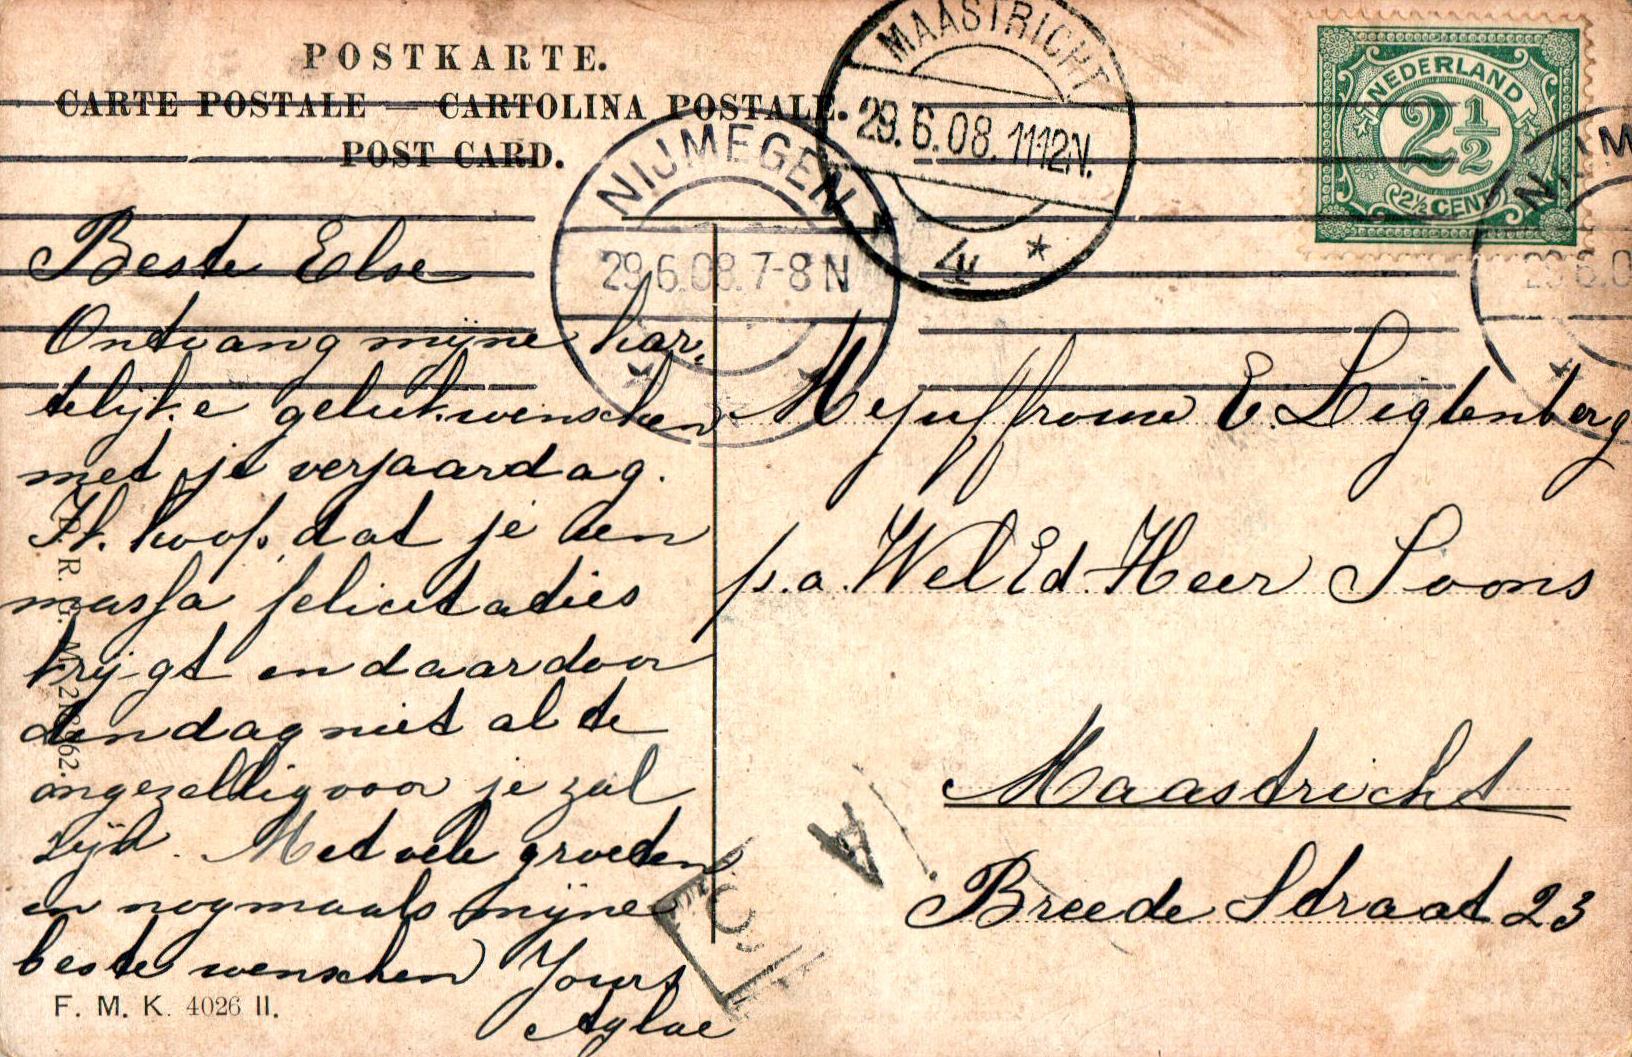 POSTKARTE.
CARTE POSTALE — CARTOLINA POSTALE.
POST CARD.
MAASTRICHT
29.6.08.11-12N.
4
NIJMEGEN
29.6.08.7-8N
NEDERLAND
2½
2½ CENT
Beste Else
Ontvang mijne har,
telijke gelukwenschen
met je verjaardag.
Ik hoop dat je een
massa felicitaties
krijgt en daardoor
den dag niet al te
ongezellig voor je zal
zijn. Met vele groeten
en nogmaals mijne
beste wenschen Yours
Aglae
Mejuffrouw E. Ligtenberg
p.a. Wel Ed. Heer Soons
Maastricht
Breede Straat 23
F. M. K. 4026 II.